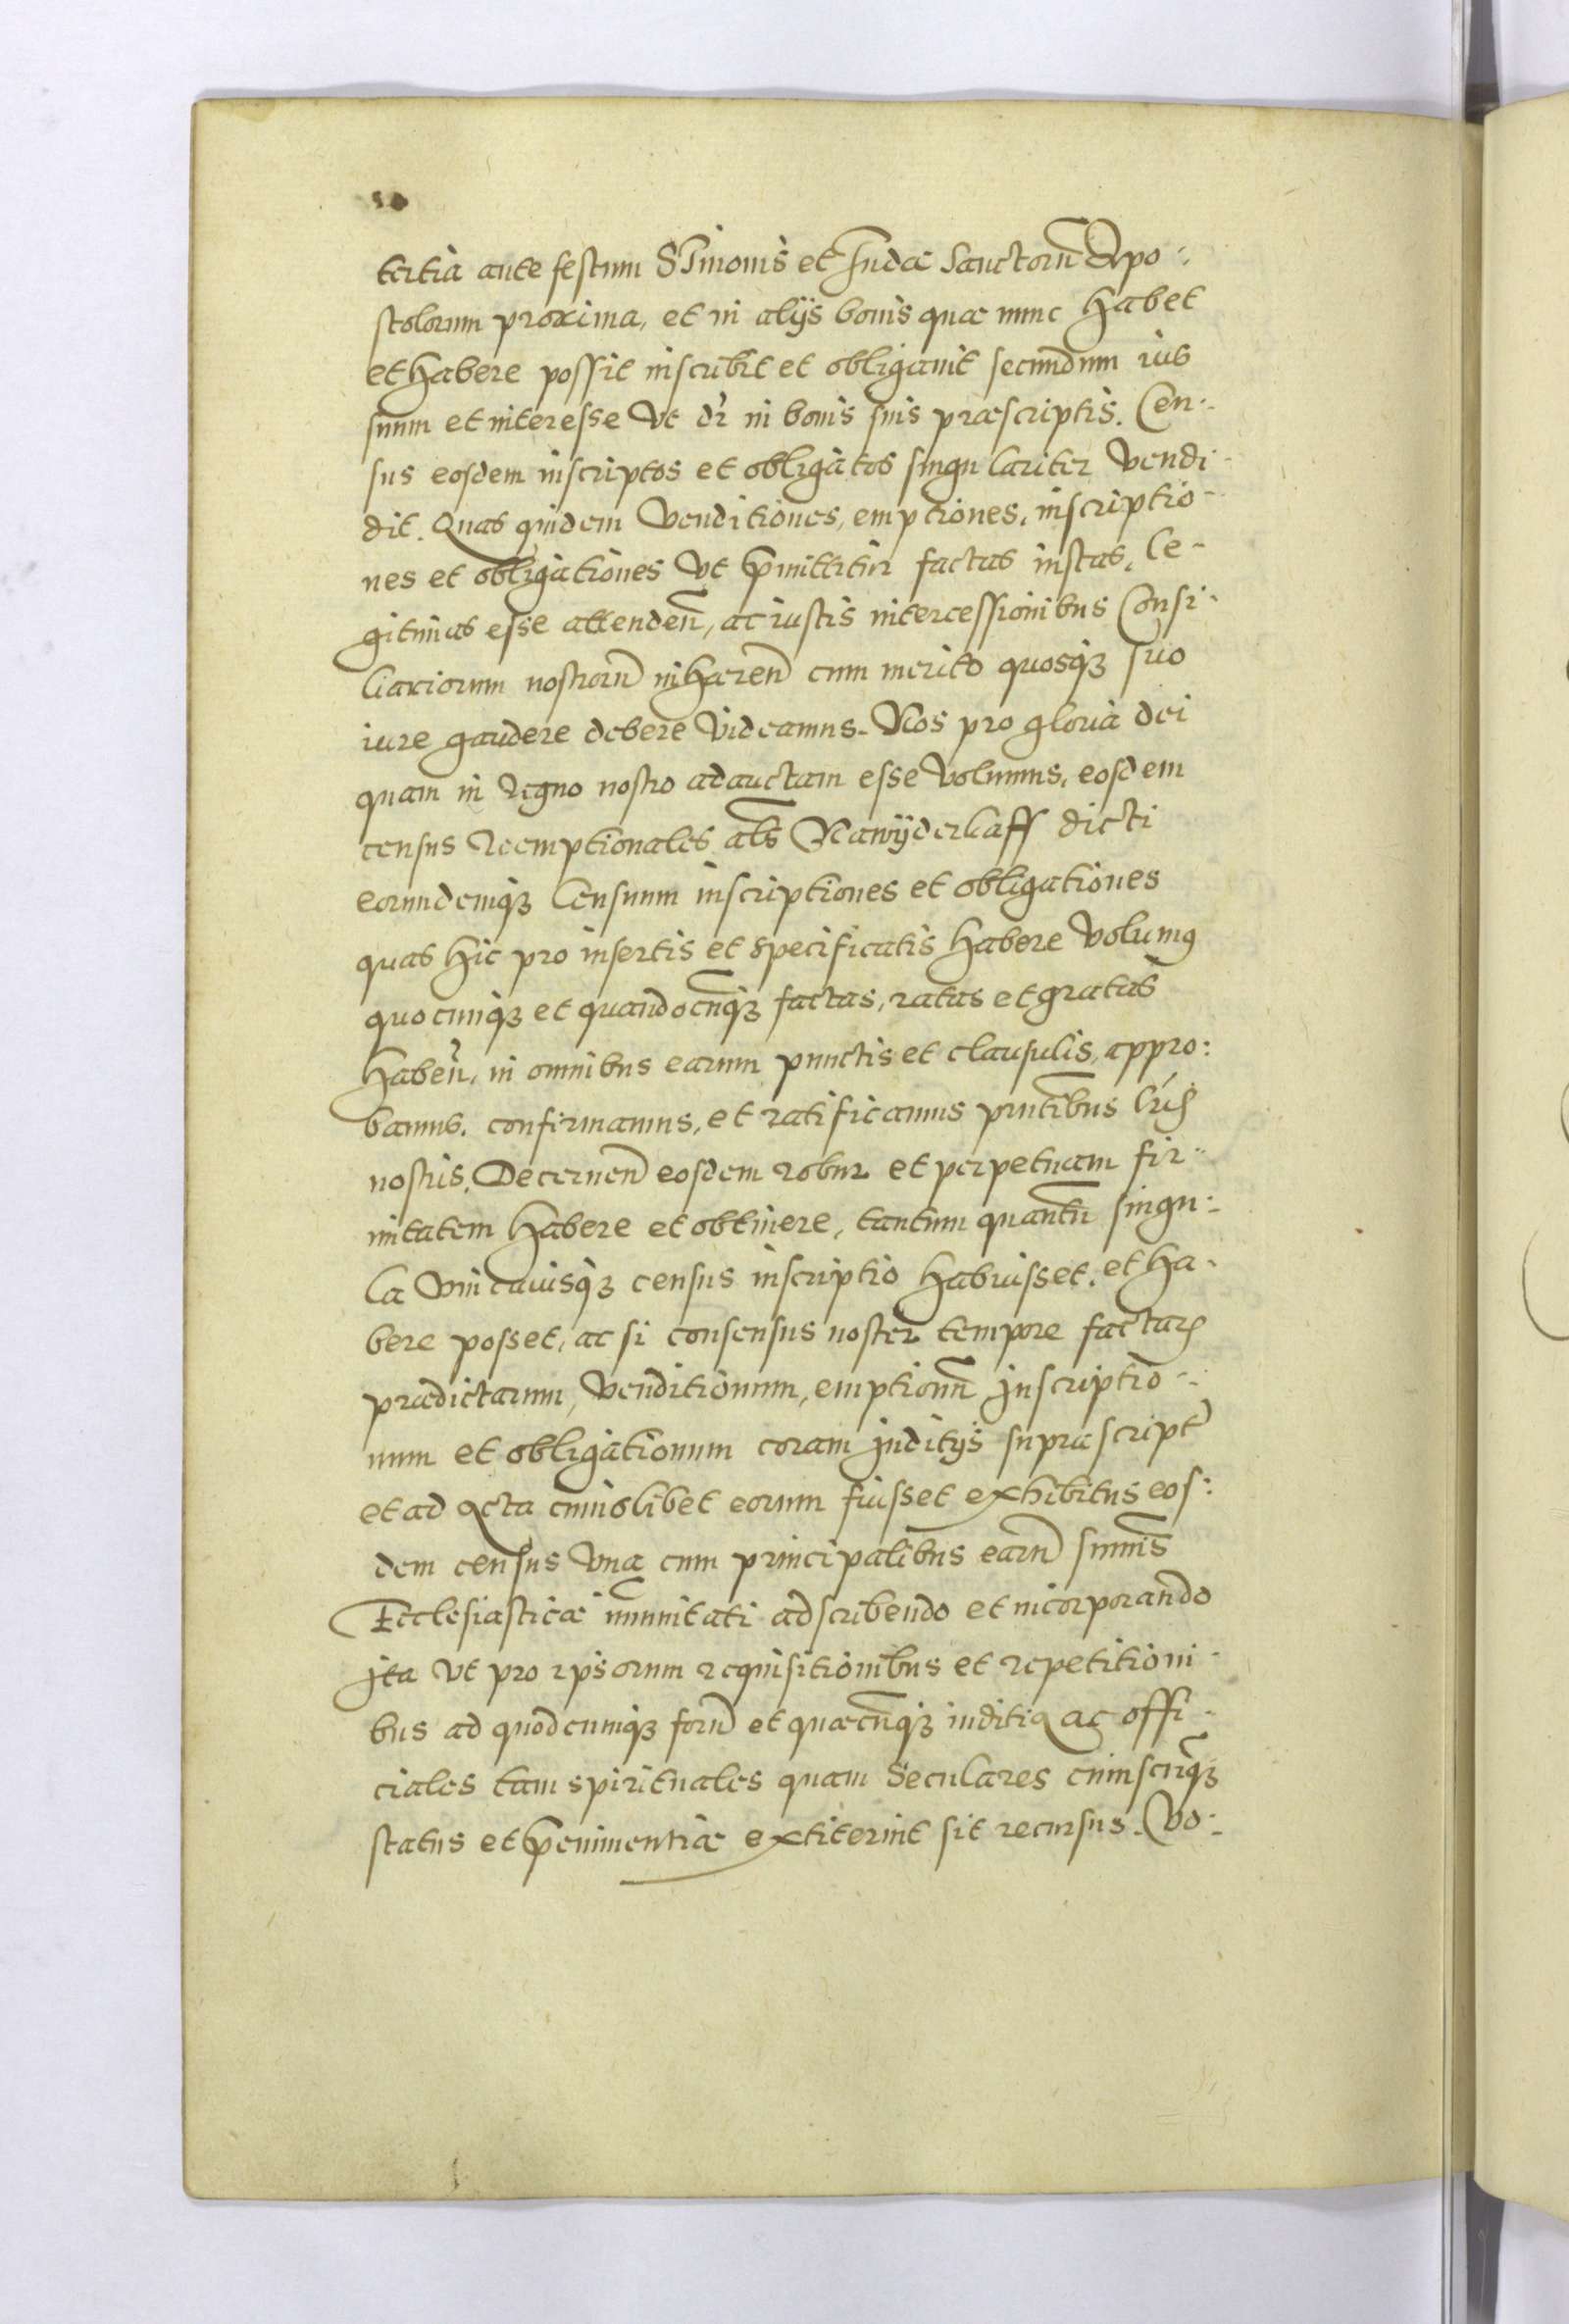 50
tertia ante festum S Simonis et Iudæ Sanctorū Apo-
stolorum proxima, et in alijs bonis quæ nunc habet
et habere possit inscribit et obligavit secundum ius
suum et interesse Vt dr̄ in bonis suis præscriptis. Cen-
sus eosdem inscriptos et obligatos singulariter Vendi-
dit. Quas quidem Venditiones, emptiones, inscriptio-
nes et obligationes Vt p̄mittitur factas iustas, le-
gitimas esse attendeñ, ac iustis intercessionibus Consi-
liariorum nostrorū inhæreñ cum merito quosq₃ suo
iure gaudere debere Videamus. Nos pro gloria dei
quam in regno nostro adauctam esse Volumus, eosdem
census reemptionales als̄ Nawÿderkaff dicti
eorundemq₃ Censuum inscriptiones et obligationes
quas hic pro insertis et specificatis habere Volumꝰ
quocunq₃ et quandocūq₃ factas, ratas et gratas
habeñ, in omnibus earum punctis et clausulis, appro-
bamus, confirmamus, et ratificamus pñtibus lr̄is
nostris. Decerneñ eosdem robur et perpetuam fir-
mitatem habere et obtinere, tantum quantū singu-
la Vnicuiusq₃ census inscriptio habuisset, et ha-
bere posset, ac si consensus noster tempore factarꝝ
prædictarum, Venditionum, emptionū inscriptio-
num et obligationum coram Juditijs supræscript̄
et ad Acta cuiuslibet eorum fuisset exhibitus eos-
dem census Vna cum principalibus earū sum̄is
Ecclesiasticæ im̄unitati adscribendo et incorporando
Ita Vt pro ipsorum requisitionibus et repetitioni-
bus ad quodcumq₃ forū et quæcūq₃ iuditia ac offi-
ciales tam spirituales quam Seculares cuiuscūq₃
status et p̄eminentiæ extiterint sit recursus. Vo-